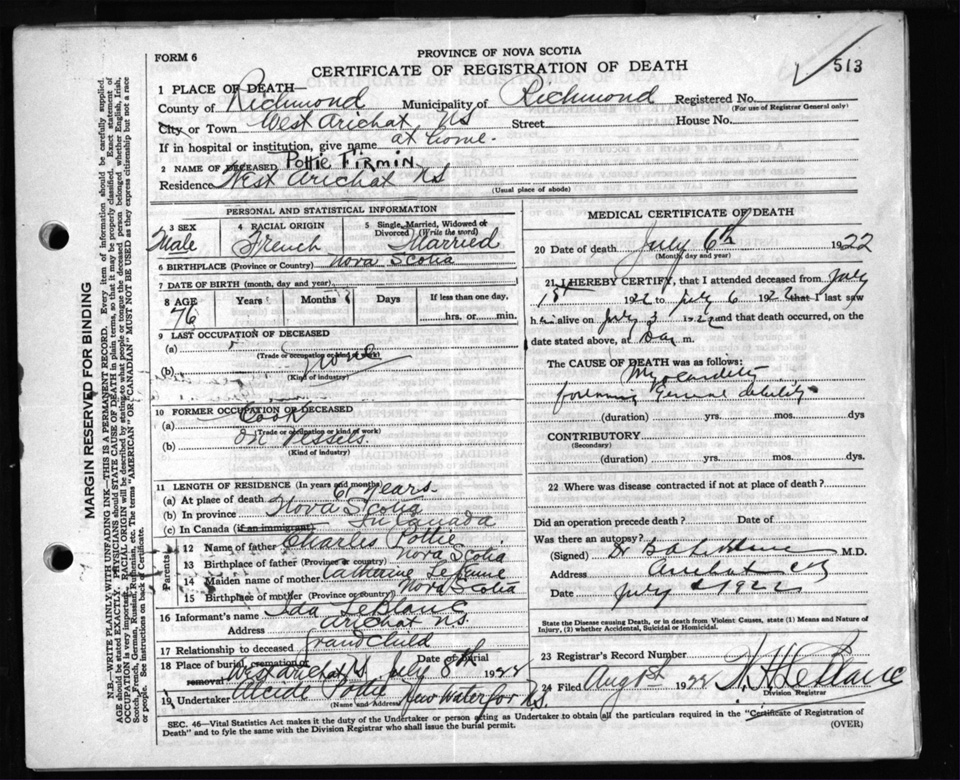 FORM 6
PROVINCE OF NOVA SCOTIA
CERTIFICATE OF REGISTRATION OF DEATH
513
1 PLACE OF DEATH—
County of Richmond Municipality of Richmond Registered No.
(For use of Registrar General only)
City or Town West Arichat NS Street House No.
If in hospital or institution, give name at home.
2 NAME OF DECEASED Pottie Firmin
Residence West Arichat NS
(Usual place of abode)
PERSONAL AND STATISTICAL INFORMATION
3 SEX 4 RACIAL ORIGIN 5 Single, Married, Widowed or Divorced) (Write the word)
Male French Married
6 BIRTHPLACE (Province or Country) Nova Scotia
7 DATE OF BIRTH (month, day and year)
8 AGE Years Months Days If less than one day,
76 hrs. or min.
9 LAST OCCUPATION OF DECEASED
(a)
(Trade or occupation or kind of work)
(b)
(Kind of industry)
10 FORMER OCCUPATION OF DECEASED
(a) Cook
(Trade or occupation or kind of work)
(b) on Vessels.
(Kind of industry)
11 LENGTH OF RESIDENCE (In years and months)
(a) At place of death 61 years.
(b) In province Nova Scotia
(c) In Canada (if an immigrant) In Canada
Parents
12 Name of father Charles Pottie
13 Birthplace of father (Province or country) Nova Scotia
14 Maiden name of mother Catherine
15 Birthplace of mother (Province or Country) Nova Scotia
16 Informant's name Ida LeBlanc
Address Arichat NS.
17 Relationship to deceased grandchild
18 Place of burial, cremation or removal West Arichat NS Date of Burial July 8th 1922
19 Undertaker Alcide Pottie New Waterfor NS.
(Name and Address)
MEDICAL CERTIFICATE OF DEATH
20 Date of death July 6th 1922
(Month, day and year)
21 I HEREBY CERTIFY, that I attended deceased from July
1st 1922 to July 6 1922 that I last saw
him alive on July 3 1922 and that death occurred, on the
date stated above, at m.
The CAUSE OF DEATH was as follows:
General debility
(duration) yrs. mos. dys
CONTRIBUTORY
(Secondary)
(duration) yrs. mos. dys.
22 Where was disease contracted if not at place of death?
Did an operation precede death? Date of
Was there an autopsy?
(Signed) Dr M.D.
Address Arichat CB
Date July 1922
State the Disease causing Death, or in death from Violent Causes, state (1) Means and Nature of Injury, (2) whether Accidental, Suicidal or Homicidal.
23 Registrar's Record Number
24 Filed Aug 1st 1922 LeBlanc
Division Registrar
SEC. 46—Vital Statistics Act makes it the duty of the Undertaker or person acting as Undertaker to obtain all the particulars required in the "Certificate of Registration of
Death" and to fyle the same with the Division Registrar who shall issue the burial permit.
(OVER)
MARGIN RESERVED FOR BINDING
N.B.—WRITE PLAINLY, WITH UNFADING INK—THIS IS A PERMANENT RECORD. Every item of information should be carefully supplied.
AGE should be stated EXACTLY. PHYSICIANS should STATE CAUSE OF DEATH in plain terms, so that it may be properly classified. Exact statement of
OCCUPATION is very important. RACIAL ORIGIN will be described by stating to what people or tongue the deceased person belonged whether English, Irish,
Scotch, French, German, Russian, Ruthenian, etc. The terms "AMERICAN" OR "CANADIAN" MUST NOT BE USED as they express citizenship but not a race
or people. See instructions on back of Certificate.